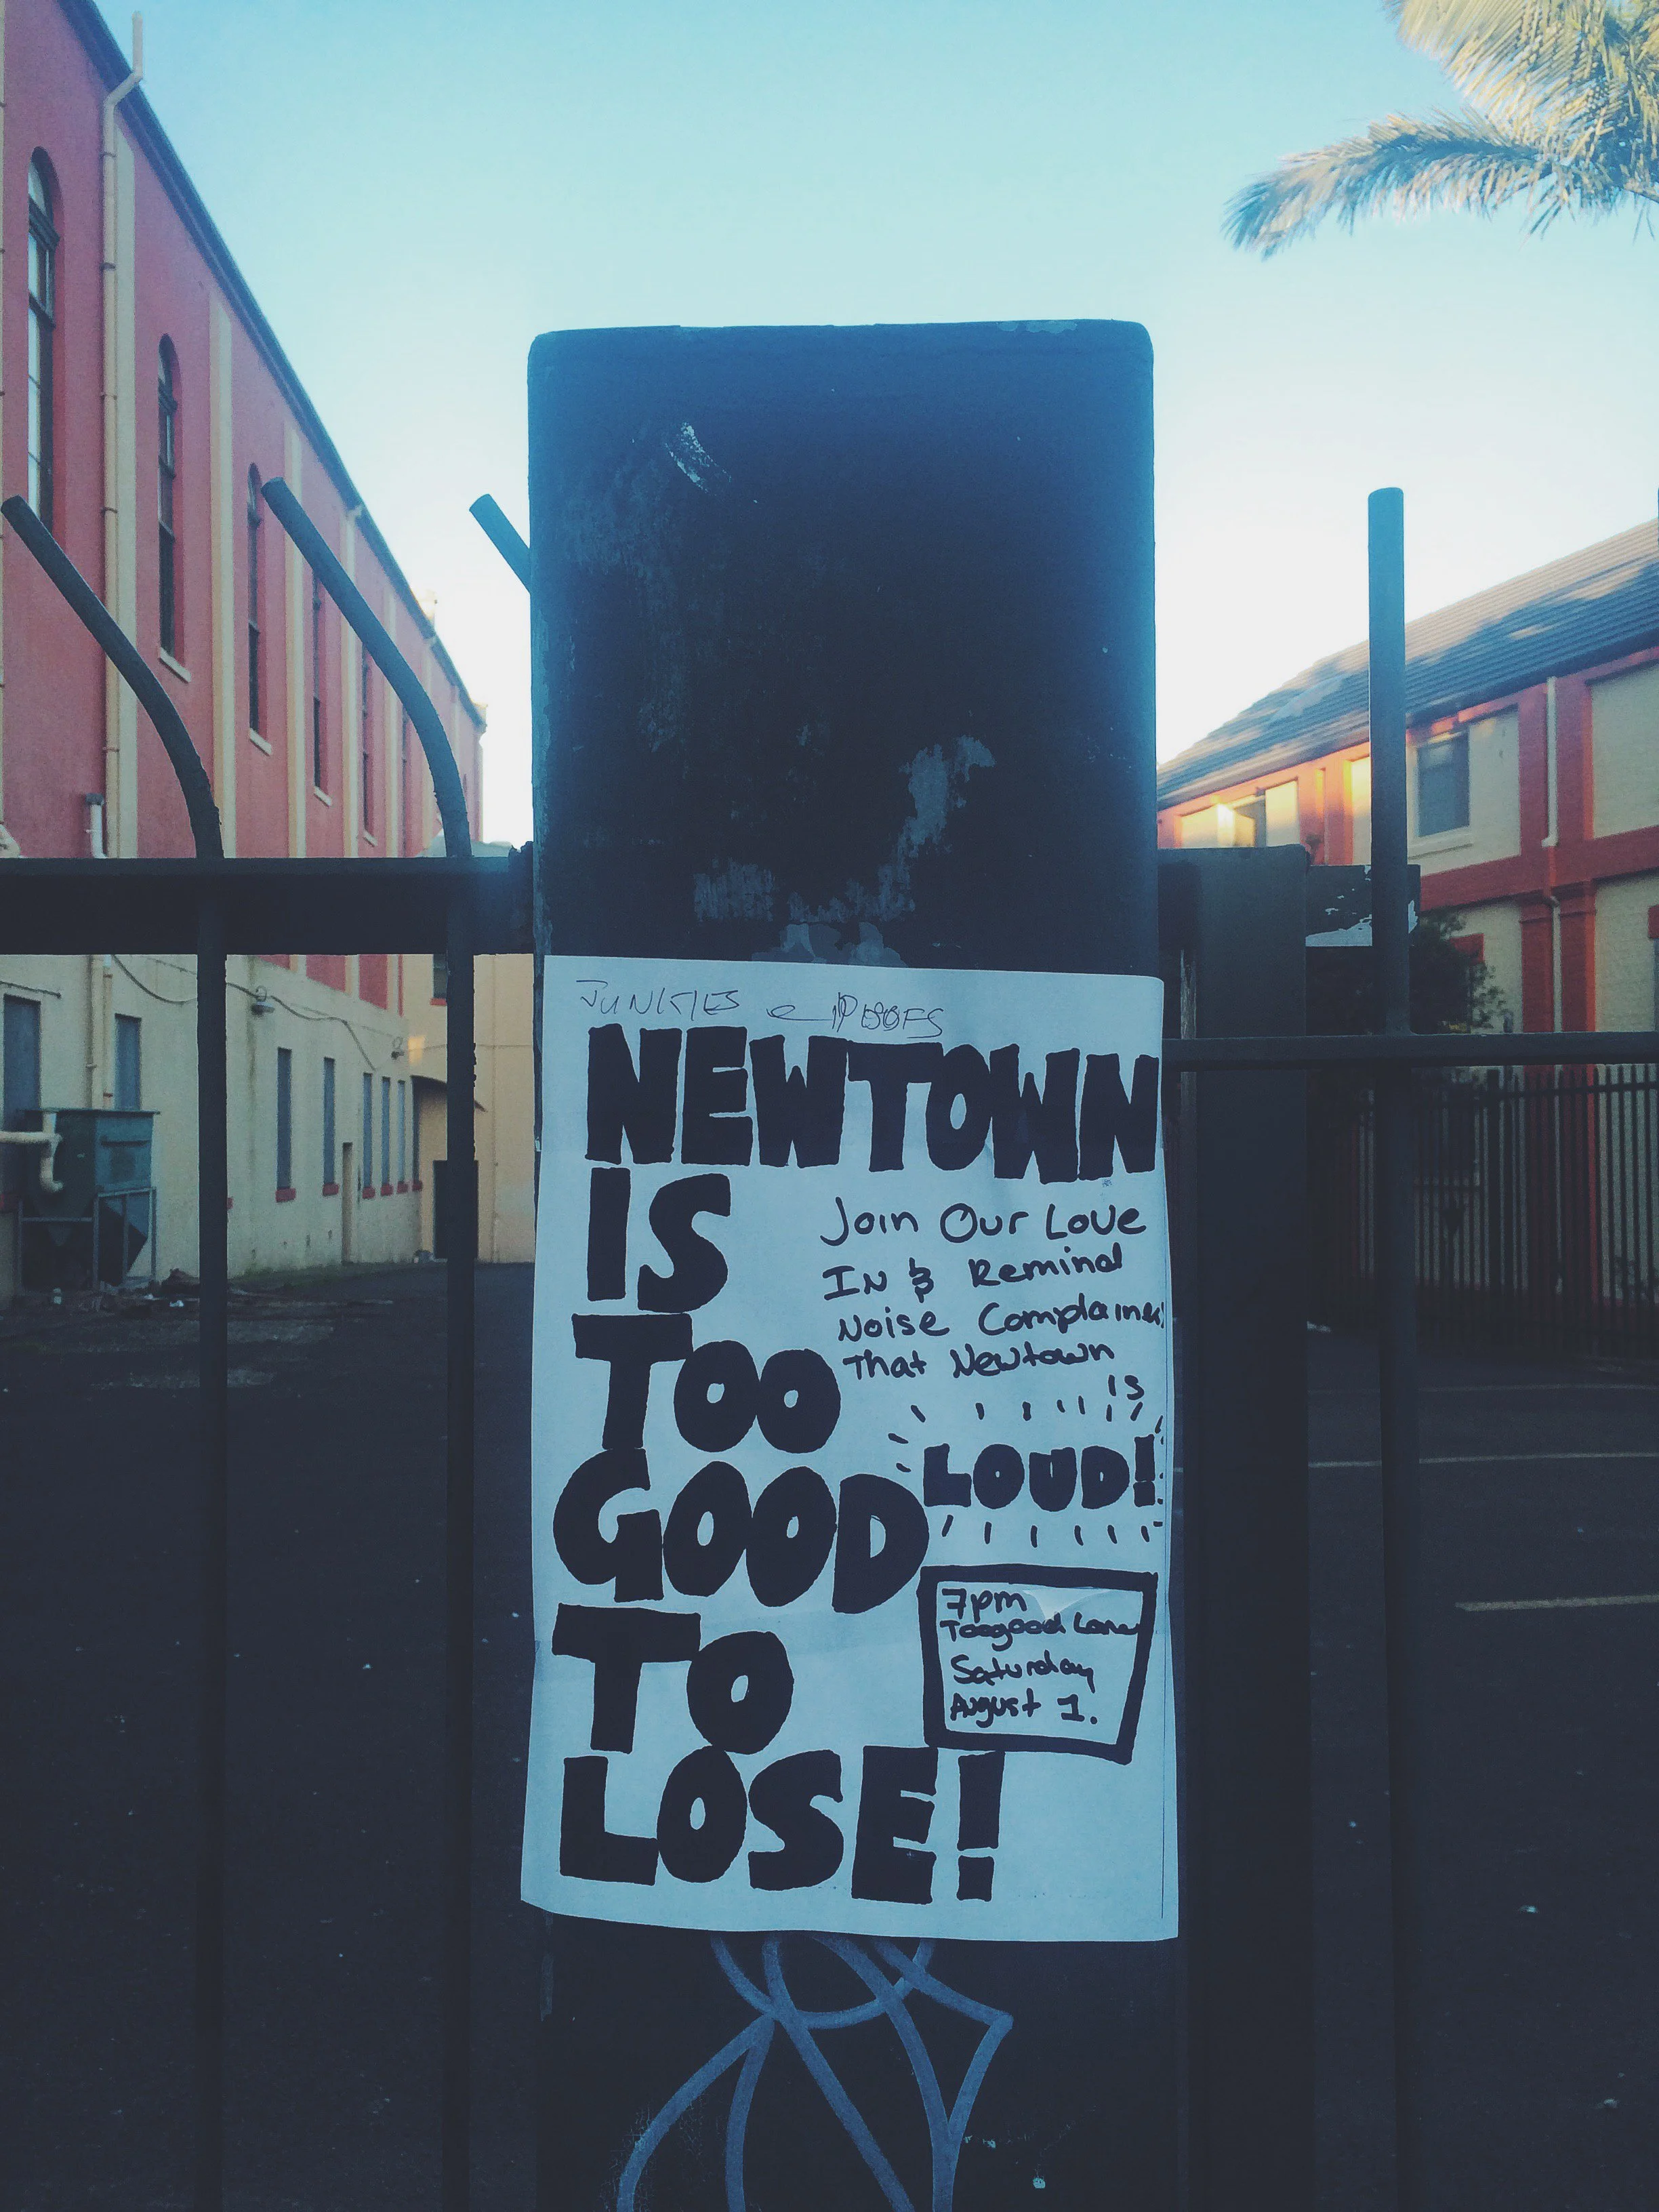 JUNKIES e POOFS
NEWTOWN
IS
TOO
GOOD
TO
LOSE!
Join Our Love
In & Remind
Noise Complainers
That Newtown
is
LOUD!
7pm
Toogood Lane
Saturday
August 1.